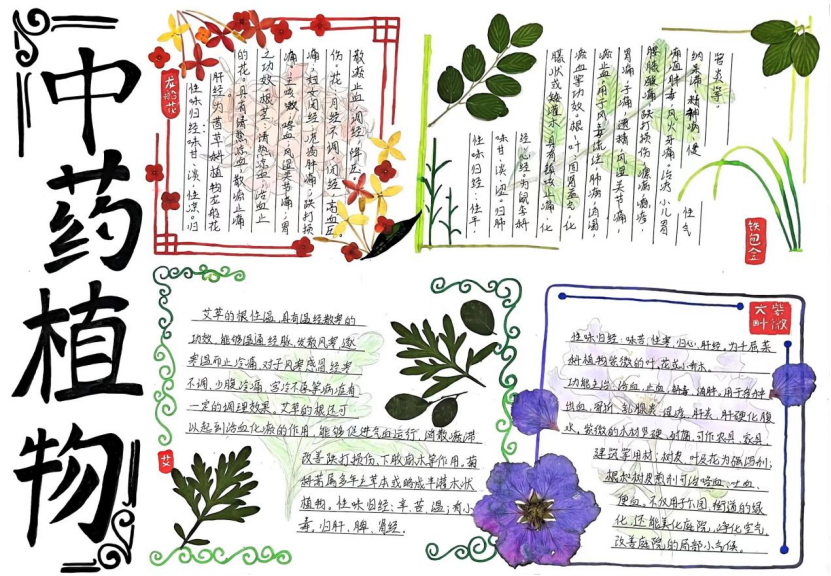 中药植物
龙船花
性味归经：味甘、淡，性凉。归
肝经。为茜草科植物龙船花
的花。具有清热凉血，散瘀止痛
之功效。根茎：清热凉血，活血止
痛。主咳嗽，咯血，风湿关节痛，胃
痛，妇女闭经，疮疡肿痛，跌打损
伤。花：月经不调，闭经，高血压。
散瘀止血，调经，降压。
性味归经：性平
味甘、淡、涩。归肝
经、心经。为鼠李科
藤状或矮灌木，具有镇咳止痛，化
瘀血等功效。根、叶：固肾益气，化
瘀止血，用于风毒流注，肺病，消渴，
胃痛，子痛，遗精，风湿关节痛，
腰膝酸痛，跌打损伤，瘰疬，瘾疹，
痛疽肿毒，风火牙痛；治疮，小儿胃
纳呆滞，精神病，便
性气
管炎等。
铁包金
艾草的根性温，具有温经散寒的
功效，能够温通经脉，发散风寒，逐
寒湿而止冷痛，对于风寒感冒，经寒
不调，少腹冷痛，宫冷不孕等病症有
一定的调理效果。艾草的根还可
以起到活血化瘀的作用，能够促进气血运行，消散瘀滞
改善跌打损伤、下肢麻木等作用。菊
科蒿属多年生草本或略成半灌木状
植物。性味归经：辛、苦，温；有小
毒。归肝、脾、肾经.
艾
大叶紫薇
性味归经：味苦，性寒，归心、肝经。为千屈菜
科植物紫薇的叶，花或小乔木。
功能主治：活血，止血，解毒，消肿。用于各种
出血，骨折，乳腺炎，湿疹，肝炎，肝硬化腹
水。紫薇的木材坚硬、耐腐，可作农具，家具
建筑等用材；树皮，叶及花为强泻剂；
根和树皮煎剂可治咯血、吐血、
便血。不仅用于公园，街道的绿
化，还能美化庭院，净化空气，
改善庭院的局部小气候。